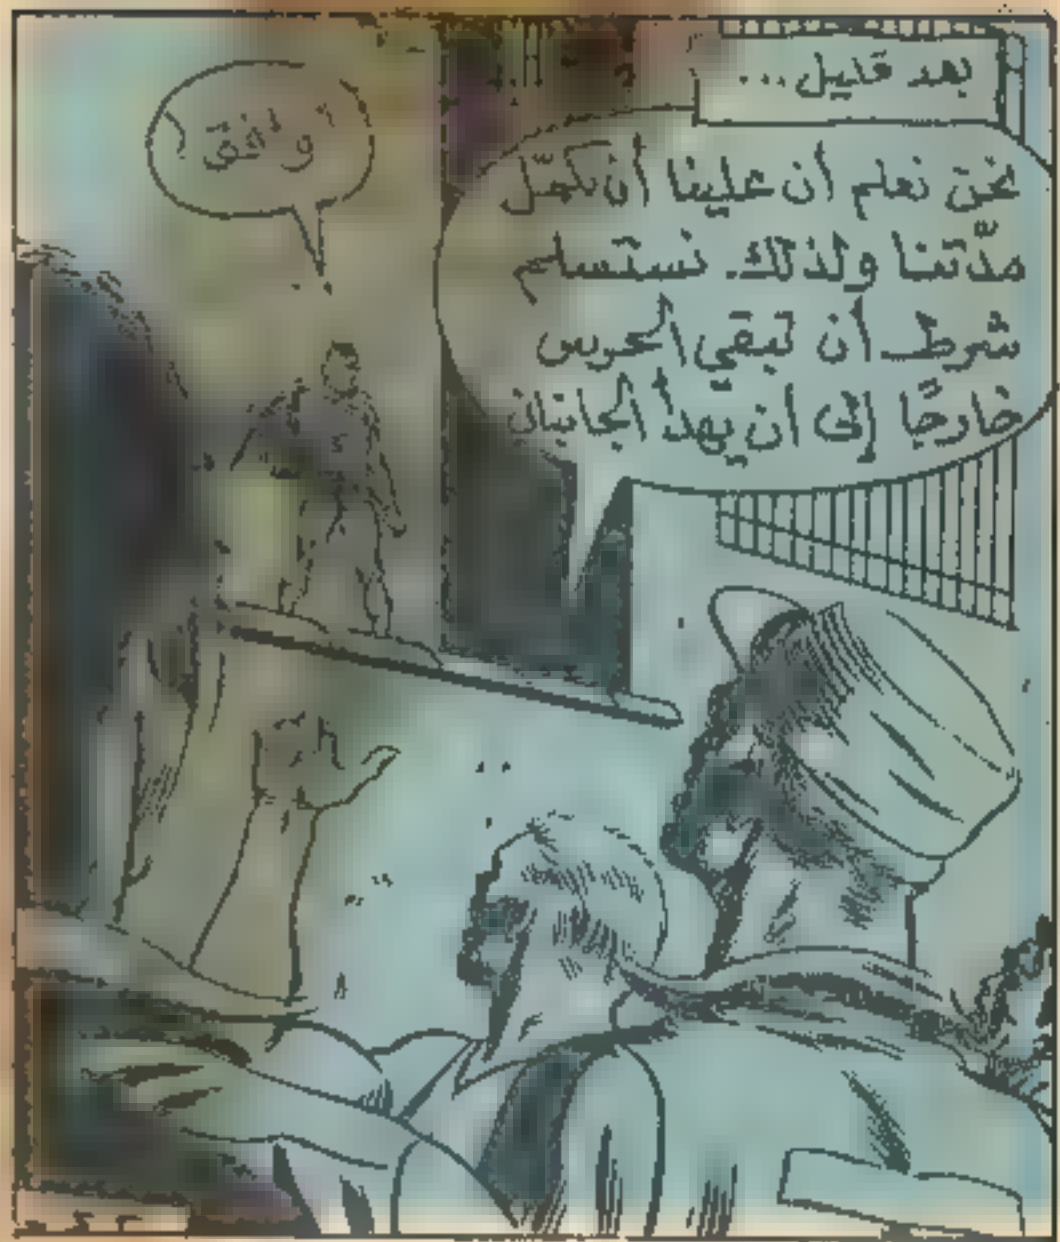 بعد قليل...
نحن نعلم أن علينا أن نكمّل
مدّتنا ولذلك نستسلم
شرط أن تبقي الحرس
خارجًا إلى أن يهدأ الجانبان
أوافق!